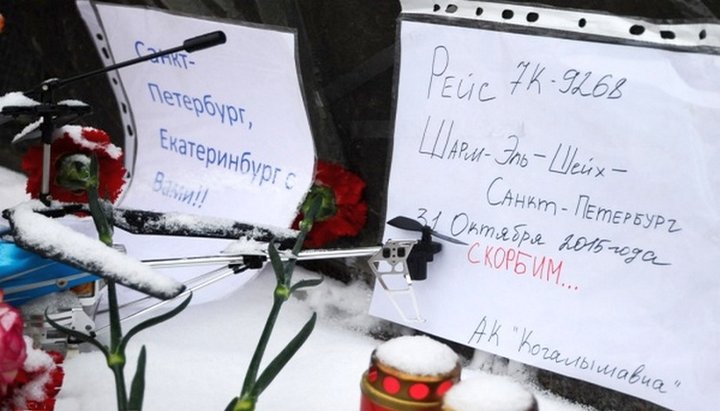 Санкт-
Петербург,
Екатеринбург с
Вами!!
Рейс 7К-9268
Шарм-Эль-Шейх-
Санкт-Петербург
31 Октября 2015года
СКОРБИМ...
АК "Когалымавиа"